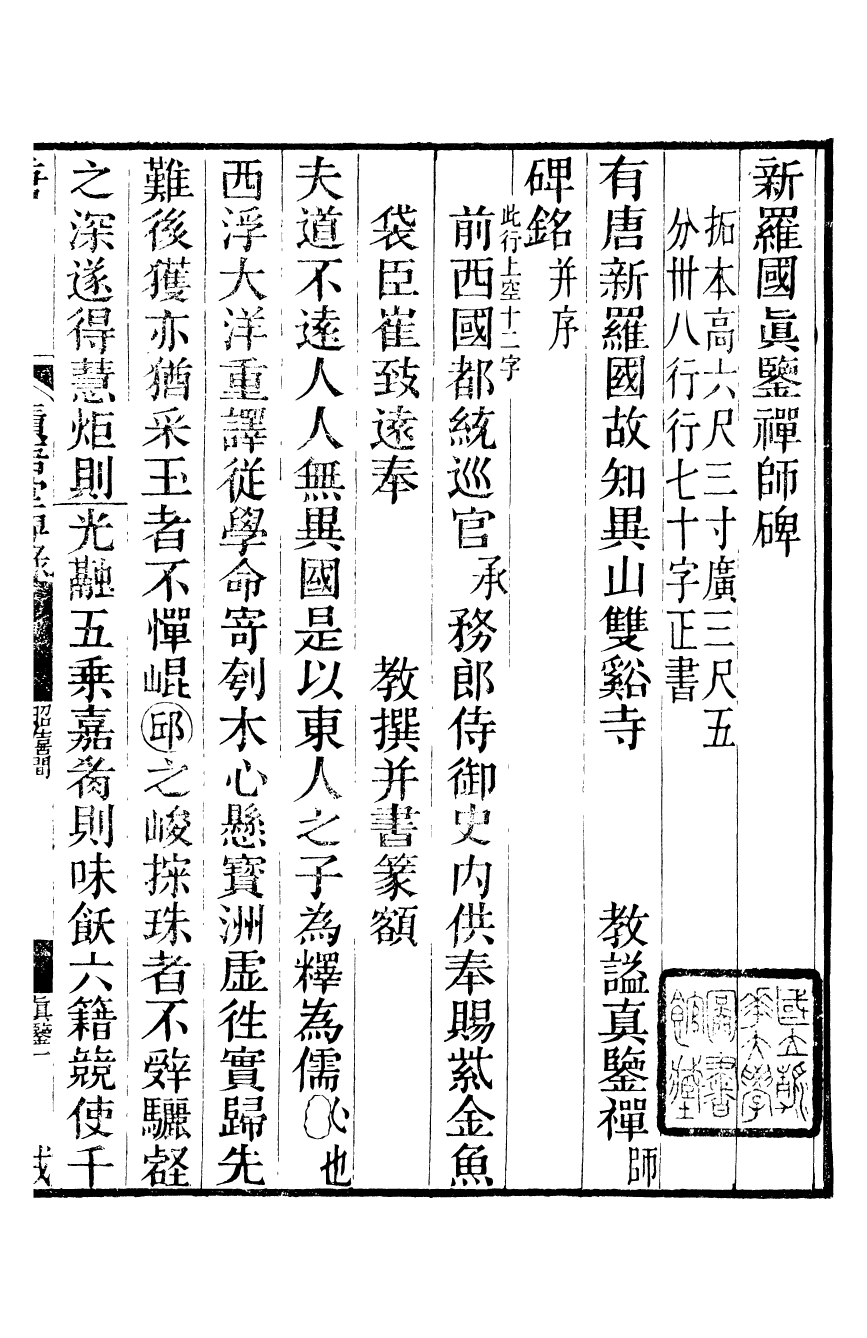 新羅國眞鑒禪師碑
拓本高六尺三寸廣三尺五
分卅八行行七十字正書
有唐新羅國故知異山雙谿寺　教謚真鑒禪師
碑銘并序
此行上空十二字
前西國都統巡官承務郎侍御史内供奉賜紫金魚
袋臣崔致遠奉　教撰并書篆額
夫道不遠人人無異國是以東人之子為釋為儒必也
西浮大洋重譯從學命寄刳木心懸寶洲虛徃實歸先
難後獲亦猶采玉者不憚崐邱之峻探珠者不辤驪壑
之深遂得慧炬則光融五乗嘉肴則味飫六籍競使千
希古樓
眞鑒一
國立北
平大學
圖書
館藏